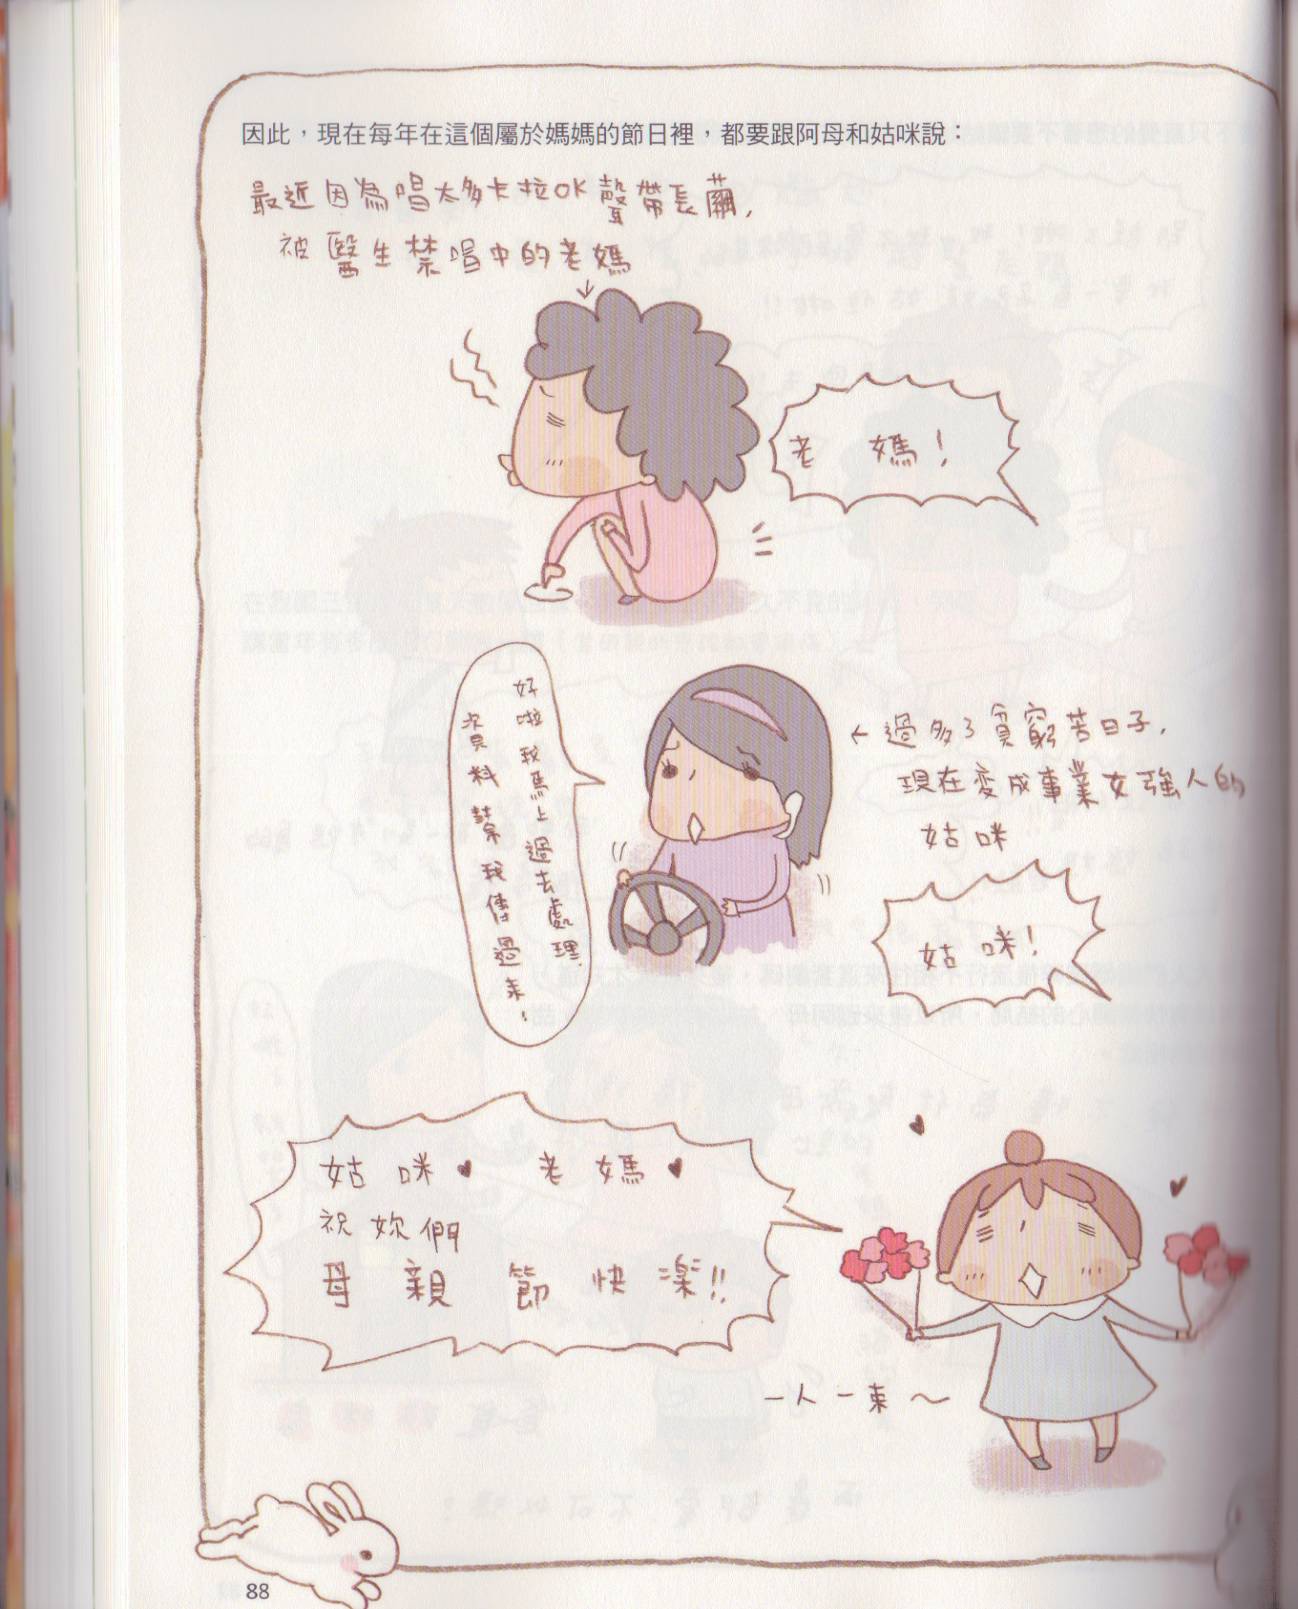 因此，現在每年在這個屬於媽媽的節日裡，都要跟阿母和姑咪說：
最近因為唱太多卡拉OK聲帶長繭,
被醫生禁唱中的老媽
老 媽！
好啦我馬上過去處理,
資料幫我傳過來！
←過多了貧窮苦日子,
現在變成事業女強人的
姑咪
姑咪！
姑咪♥ 老媽♥
祝妳們
母親節快樂!!
一人一束～
88